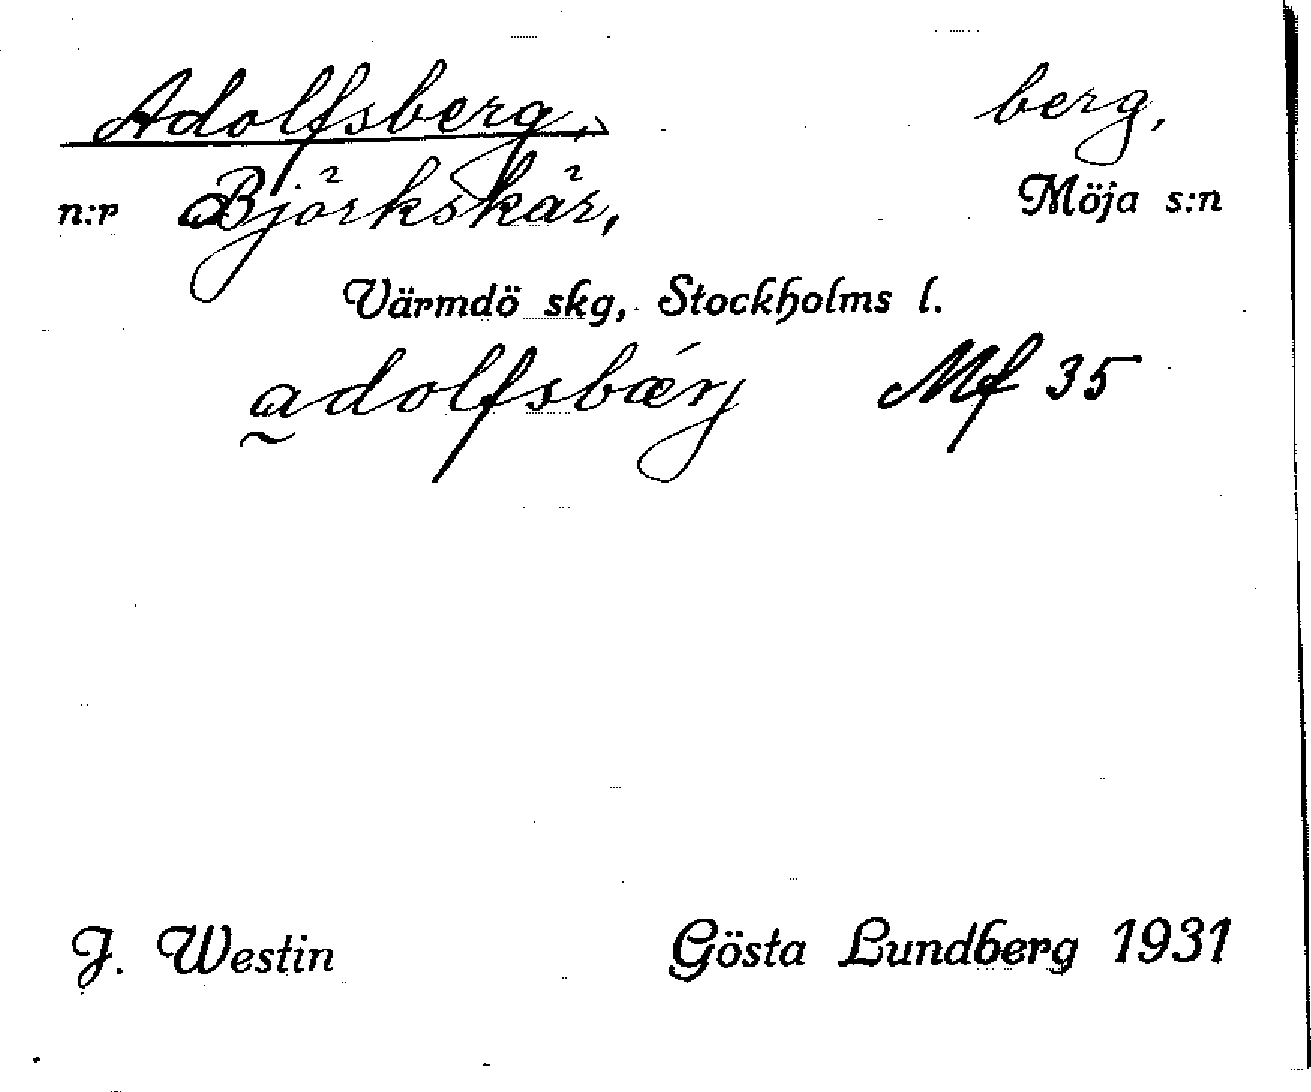 Adolfsberg, berg,
n:r Björkskär, Möja s:n
Värmdö skg, Stockholms l.
adolfsbærj Mf 35
J. Westin Gösta Lundberg 1931